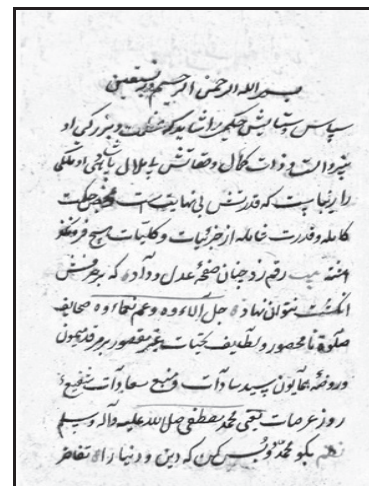 بسم الله الرحمن الرحیم و به نستعین
سپاس و ستایش حکیمی را شاید که عظمت و بزرگی او
و ذات کمال و صفاتش بی‌ملال پادشاهی او ملکی
را زیباست که قدرتش بی نهایتست حکمت
کامله و قدرت شامله از جزئیات و کلیات هیچ فرو
رقم زد چنان صفحهٔ عدل و داده که بر حرفش
انگشت نتوان نهاده جل آلاءه و عم نعماءه صحایف
صلوة نامحصور و لطایف تحیات غیر مقصور بر مرقد میمون
و روضهٔ همایون سید سادات و منبع سعادات شفیع
روز عرصات یعنی محمد مصطفی صلی الله علیه وآله وسلم
نظم بگو محمد و بس کن که دین و دنیا را تفاخر